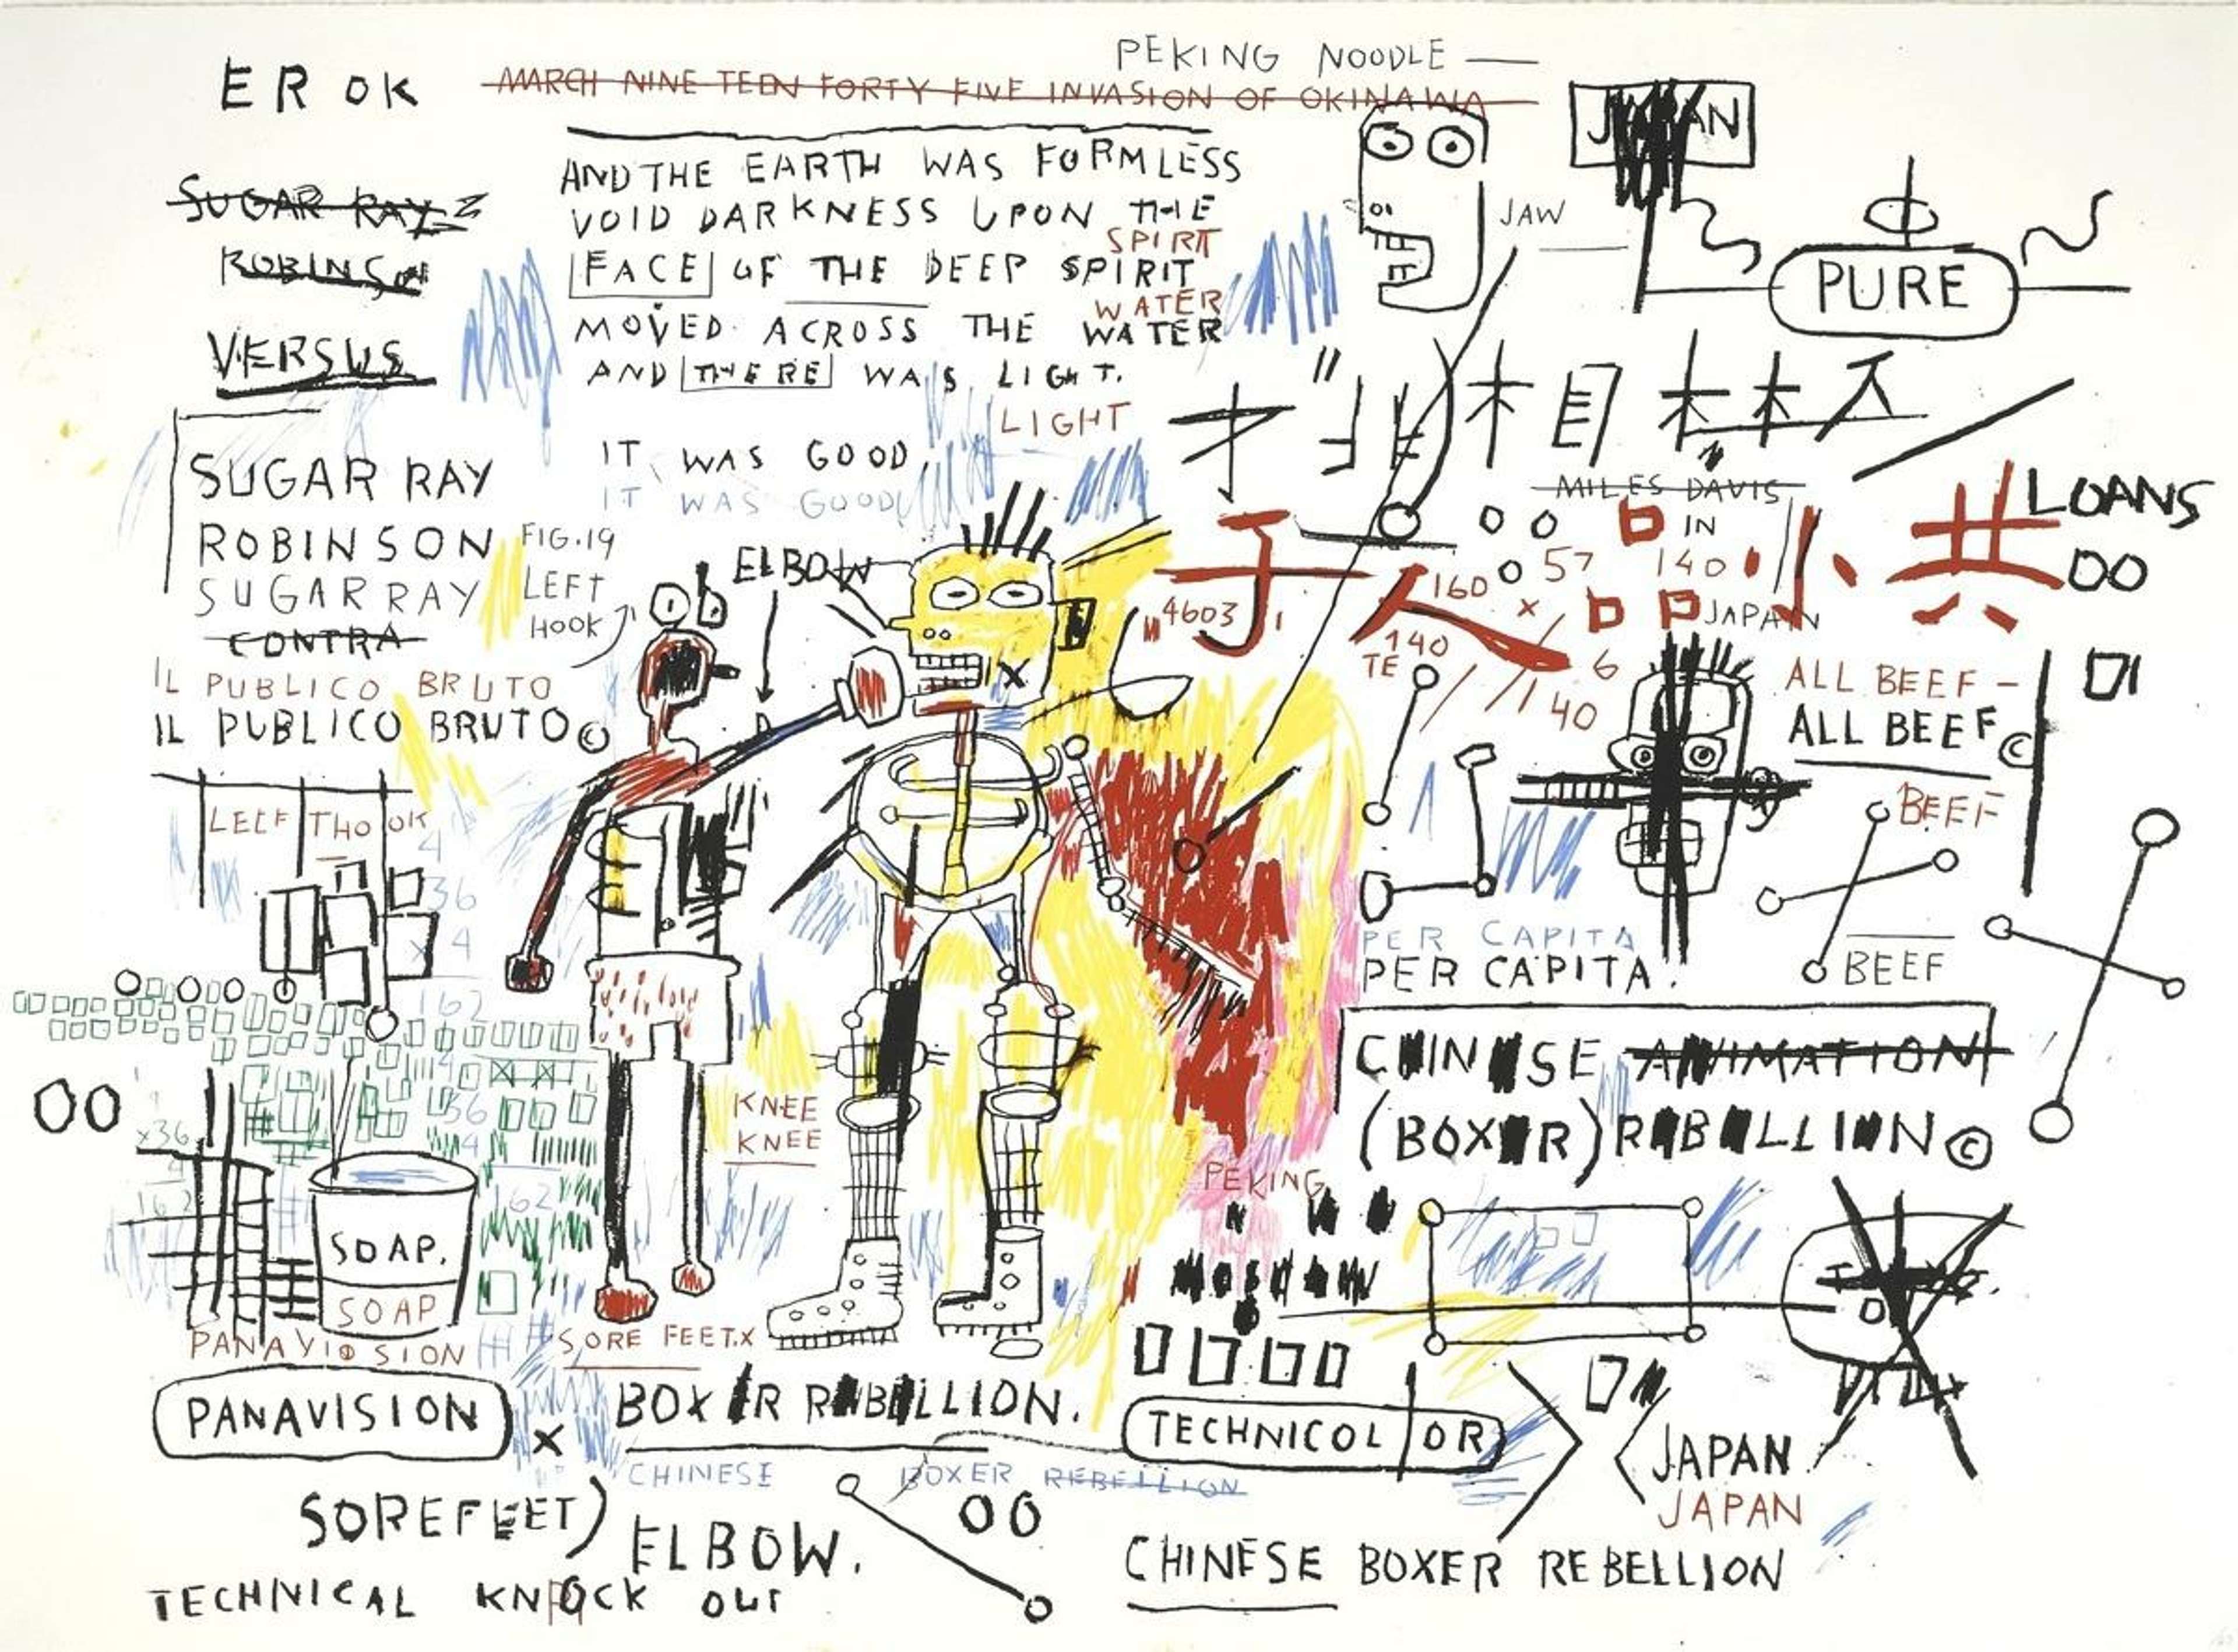 PEKING NOODLE —
EROK
MARCH NINE TEEN FORTY FIVE INVASION OF OKINAWA
JAPAN
SUGAR RAY
ROBINSON
VERSUS
AND THE EARTH WAS FORMLESS
VOID DARKNESS UPON THE
SPIRT
FACE OF THE DEEP SPIRIT
WATER
MOVED ACROSS THE WATER
AND THERE WAS LIGHT.
LIGHT
IT WAS GOOD
IT WAS GOOD
JAW
PURE
木目木木
MILES DAVIS
IN
LOANS
OO
于人
小共
57
140
160
JAPAN
"4603
140
TE
6
x
140
SUGAR RAY
ROBINSON
SUGAR RAY
CONTRA
IL PUBLICO BRUTO
IL PUBLICO BRUTO©
FIG.19
LEFT
HOOK
ELBOW
X
ALL BEEF –
ALL BEEF©
BEEF
BEEF
LEEF THO OK
4
36
x 4
162
PER CAPITA
PER CAPITA.
CHINSE ANIMATION
(BOXR) RBLLION©
OO
x36
4
162
36
4
162
KNEE
KNEE
PEKING
SOAP.
SOAP
PANAVISION
SORE FEET.X
PANAVISION
X
BOXR RBLLION.
TECHNICOLOR
JAPAN
JAPAN
CHINESE BOXER REBELLION
SOREFEET)
ELBOW.
OO
CHINESE BOXER REBELLION
TECHNICAL KNOCK OUT